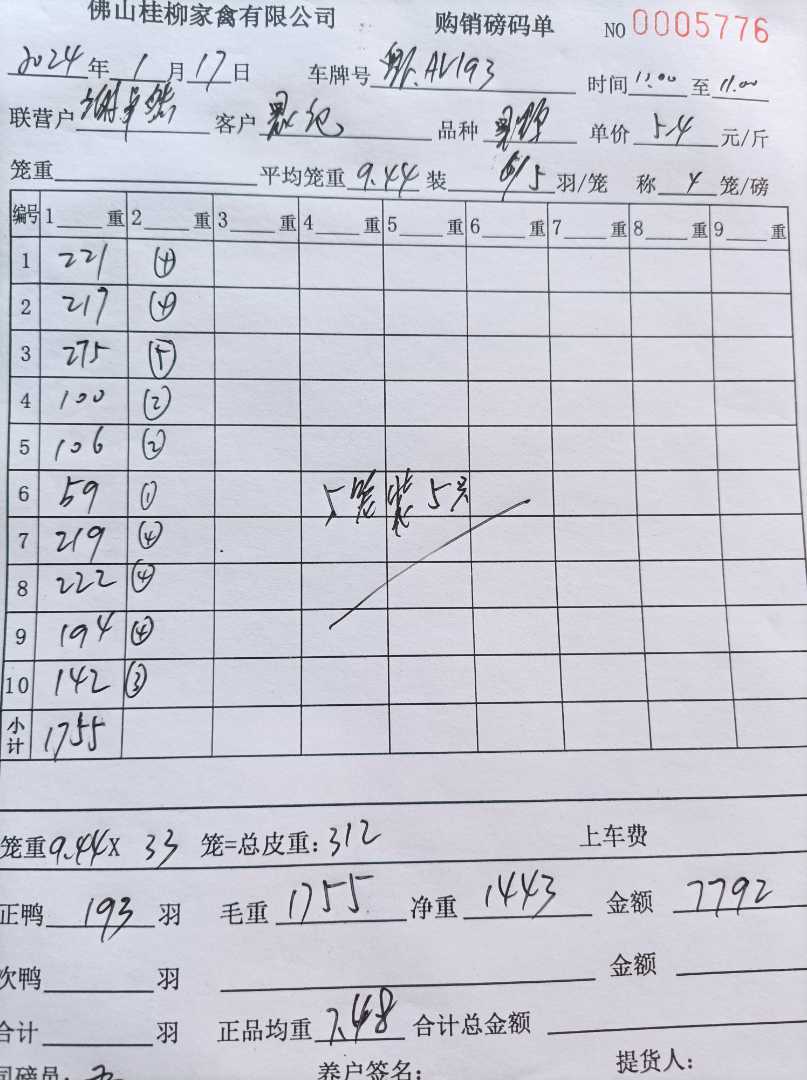 佛山桂柳家禽有限公司 购销磅码单 NO 0005776
2024年1月17日 车牌号 AV193 时间 11:00 至 11:00
联营户 客户 品种 单价 5.4 元/斤
笼重 平均笼重 9.44 装 6/5 羽/笼 称 4 笼/磅
编号 1 重 2 重 3 重 4 重 5 重 6 重 7 重 8 重 9 重
1 221 ④
2 217 ④
3 275 ⑤
4 100 ②
5 106 ②
6 59 ① 5笼装5只
7 219 ④
8 222 ④
9 194 ④
10 142 ③
小计 1755
笼重9.44X 33 笼=总皮重:312 上车费
正鸭 193 羽 毛重 1755 净重 1443 金额 7792
次鸭 羽 金额
合计 羽 正品均重 7.48 合计总金额
司磅员: 养户签名: 提货人: